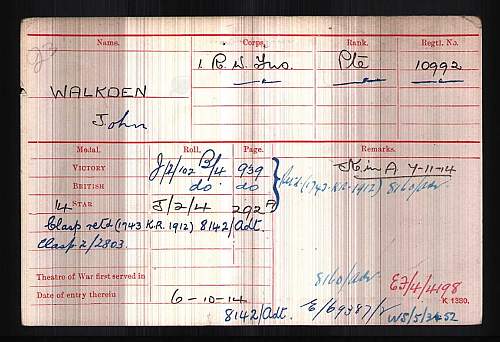 Name. Corps. Rank. Regtl. No.
WALKDEN 1 R. W. Fus. Pte 10992
John
Medal. Roll. Page. Remarks.
VICTORY J/2/102 B1/4 939 K in A 7-11-14
BRITISH do do (1743 K.R. 1912) 8160/Adt.
14 STAR J/2/4 292A
Clasp retd (1743 K.R. 1912) 8142/Adt.
Clasp Z/2803.
Theatre of War first served in 8160/Adt
Date of entry therein 6-10-14 EF/4/4498
K 1380.
8142/Adt. E/69387/